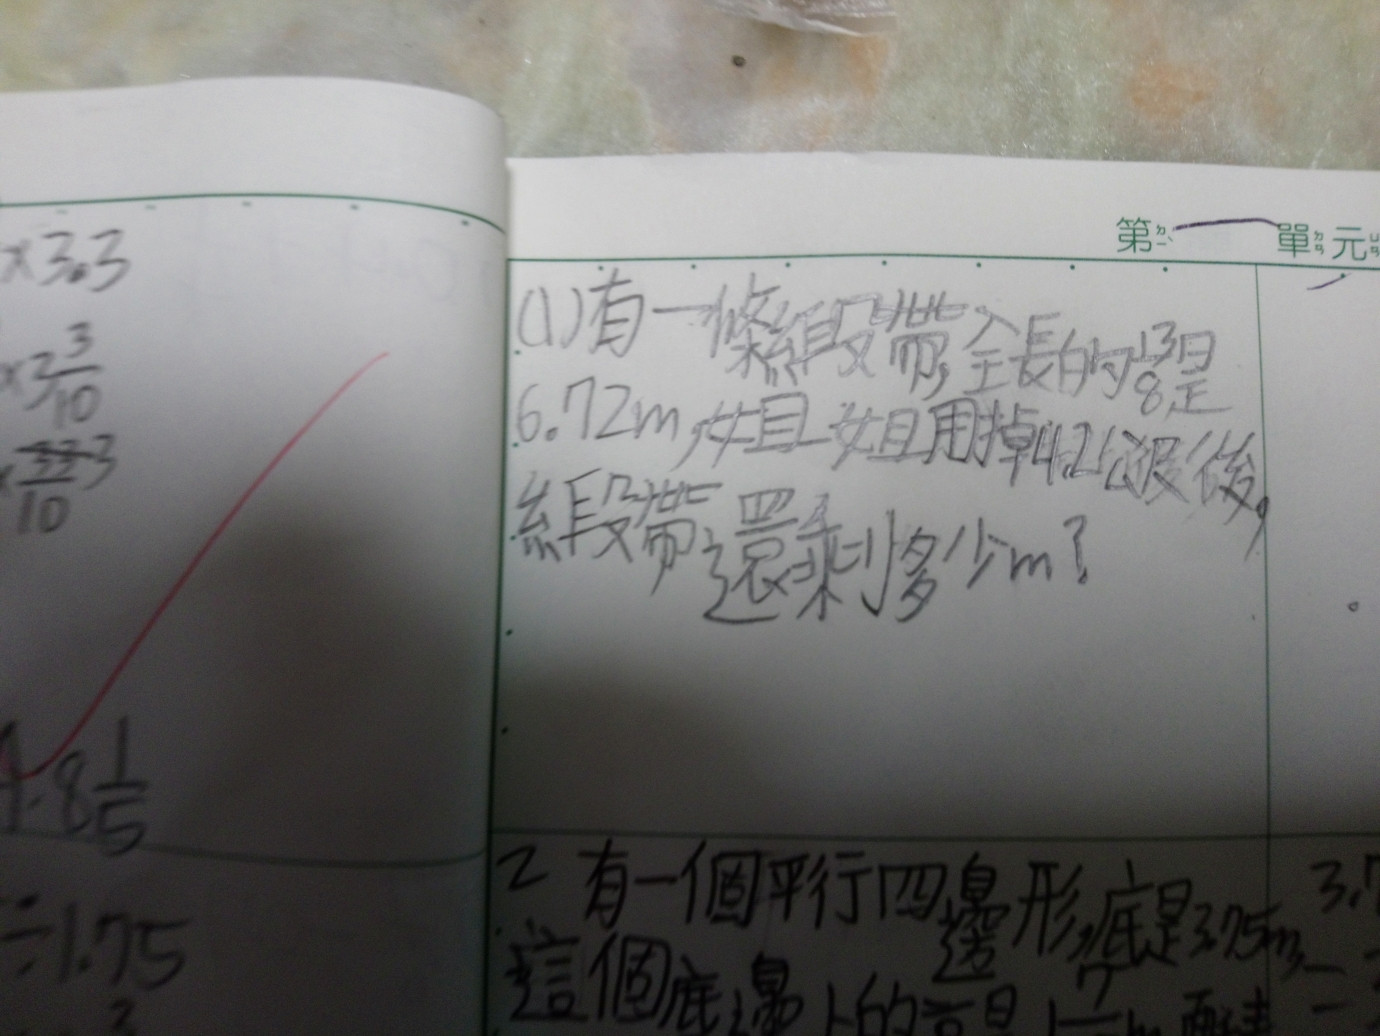 ×3.3
×3 3/10
10
4.8 1/5
÷1.75
3
第一單元
(1)有一條緞帶,全長的13/8是
6.72m,姐姐用掉4.2公尺後,
緞帶還剩多少m?
2 有一個平行四邊形,底是3.75m,
這個底邊上的高是
3.